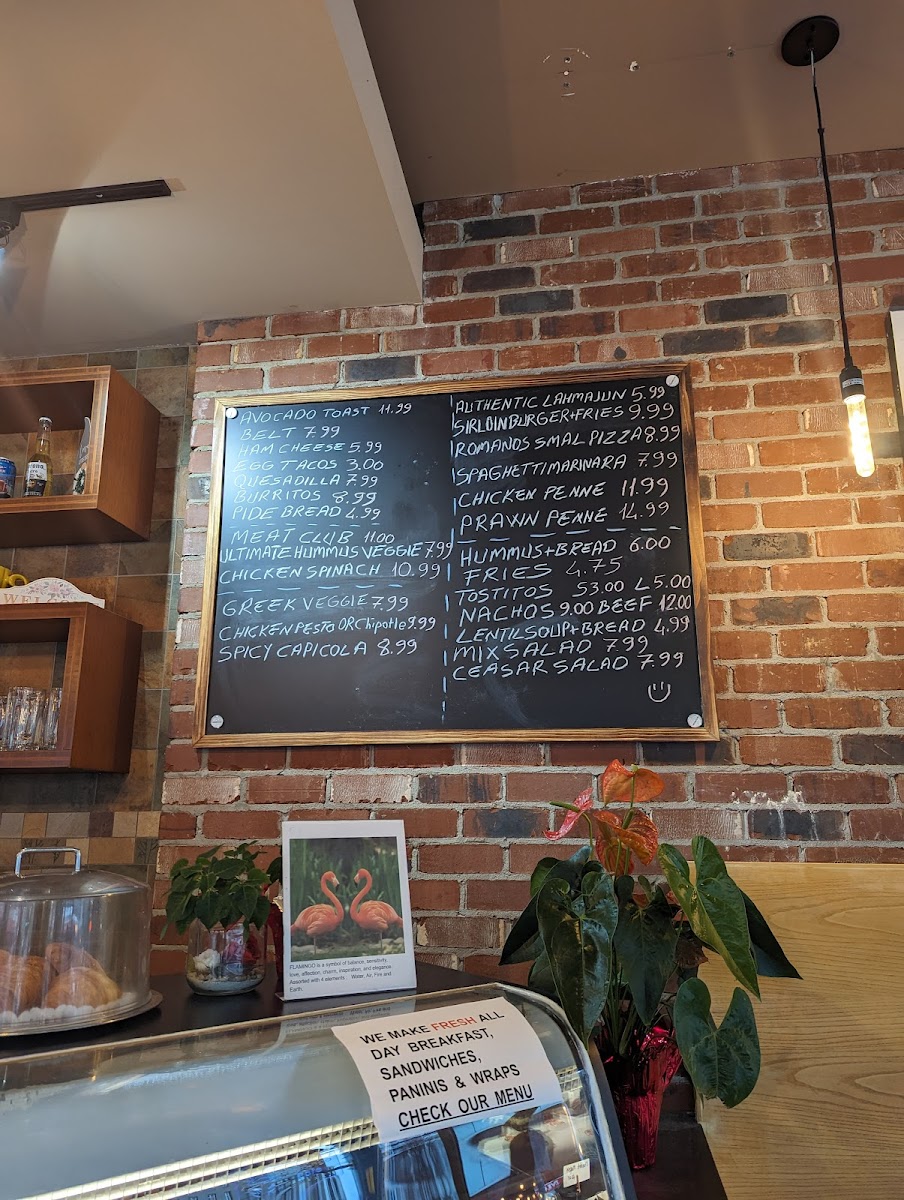 AVOCADO TOAST 11.99
BELT 7.99
HAM CHEESE 5.99
EGG TACOS 3.00
QUESADILLA 7.99
BURRITOS 8.99
PIDE BREAD 4.99
MEAT CLUB 11.00
ULTIMATE HUMMUS VEGGIE 7.99
CHICKEN SPINACH 10.99
GREEK VEGGIE 7.99
CHICKEN PESTO OR Chipotle 9.99
SPICY CAPICOLA 8.99
AUTHENTIC LAHMAJUN 5.99
SIRLOIN BURGER+FRIES 9.99
ROMANOS SMAL PIZZA 8.99
SPAGHETTI MARINARA 7.99
CHICKEN PENNE 11.99
PRAWN PENNE 14.99
HUMMUS+BREAD 6.00
FRIES 4.75
TOSTITOS S3.00 L5.00
NACHOS 9.00 BEEF 12.00
LENTIL SOUP+BREAD 4.99
MIX SALAD 7.99
CEASAR SALAD 7.99
FLAMINGO is a symbol of balance, sensitivity,
love, affection, charm, inspiration, and elegance.
Assorted with 4 elements. Water, Air, Fire and
Earth.
WE MAKE FRESH ALL
DAY BREAKFAST,
SANDWICHES,
PANINIS & WRAPS
CHECK OUR MENU